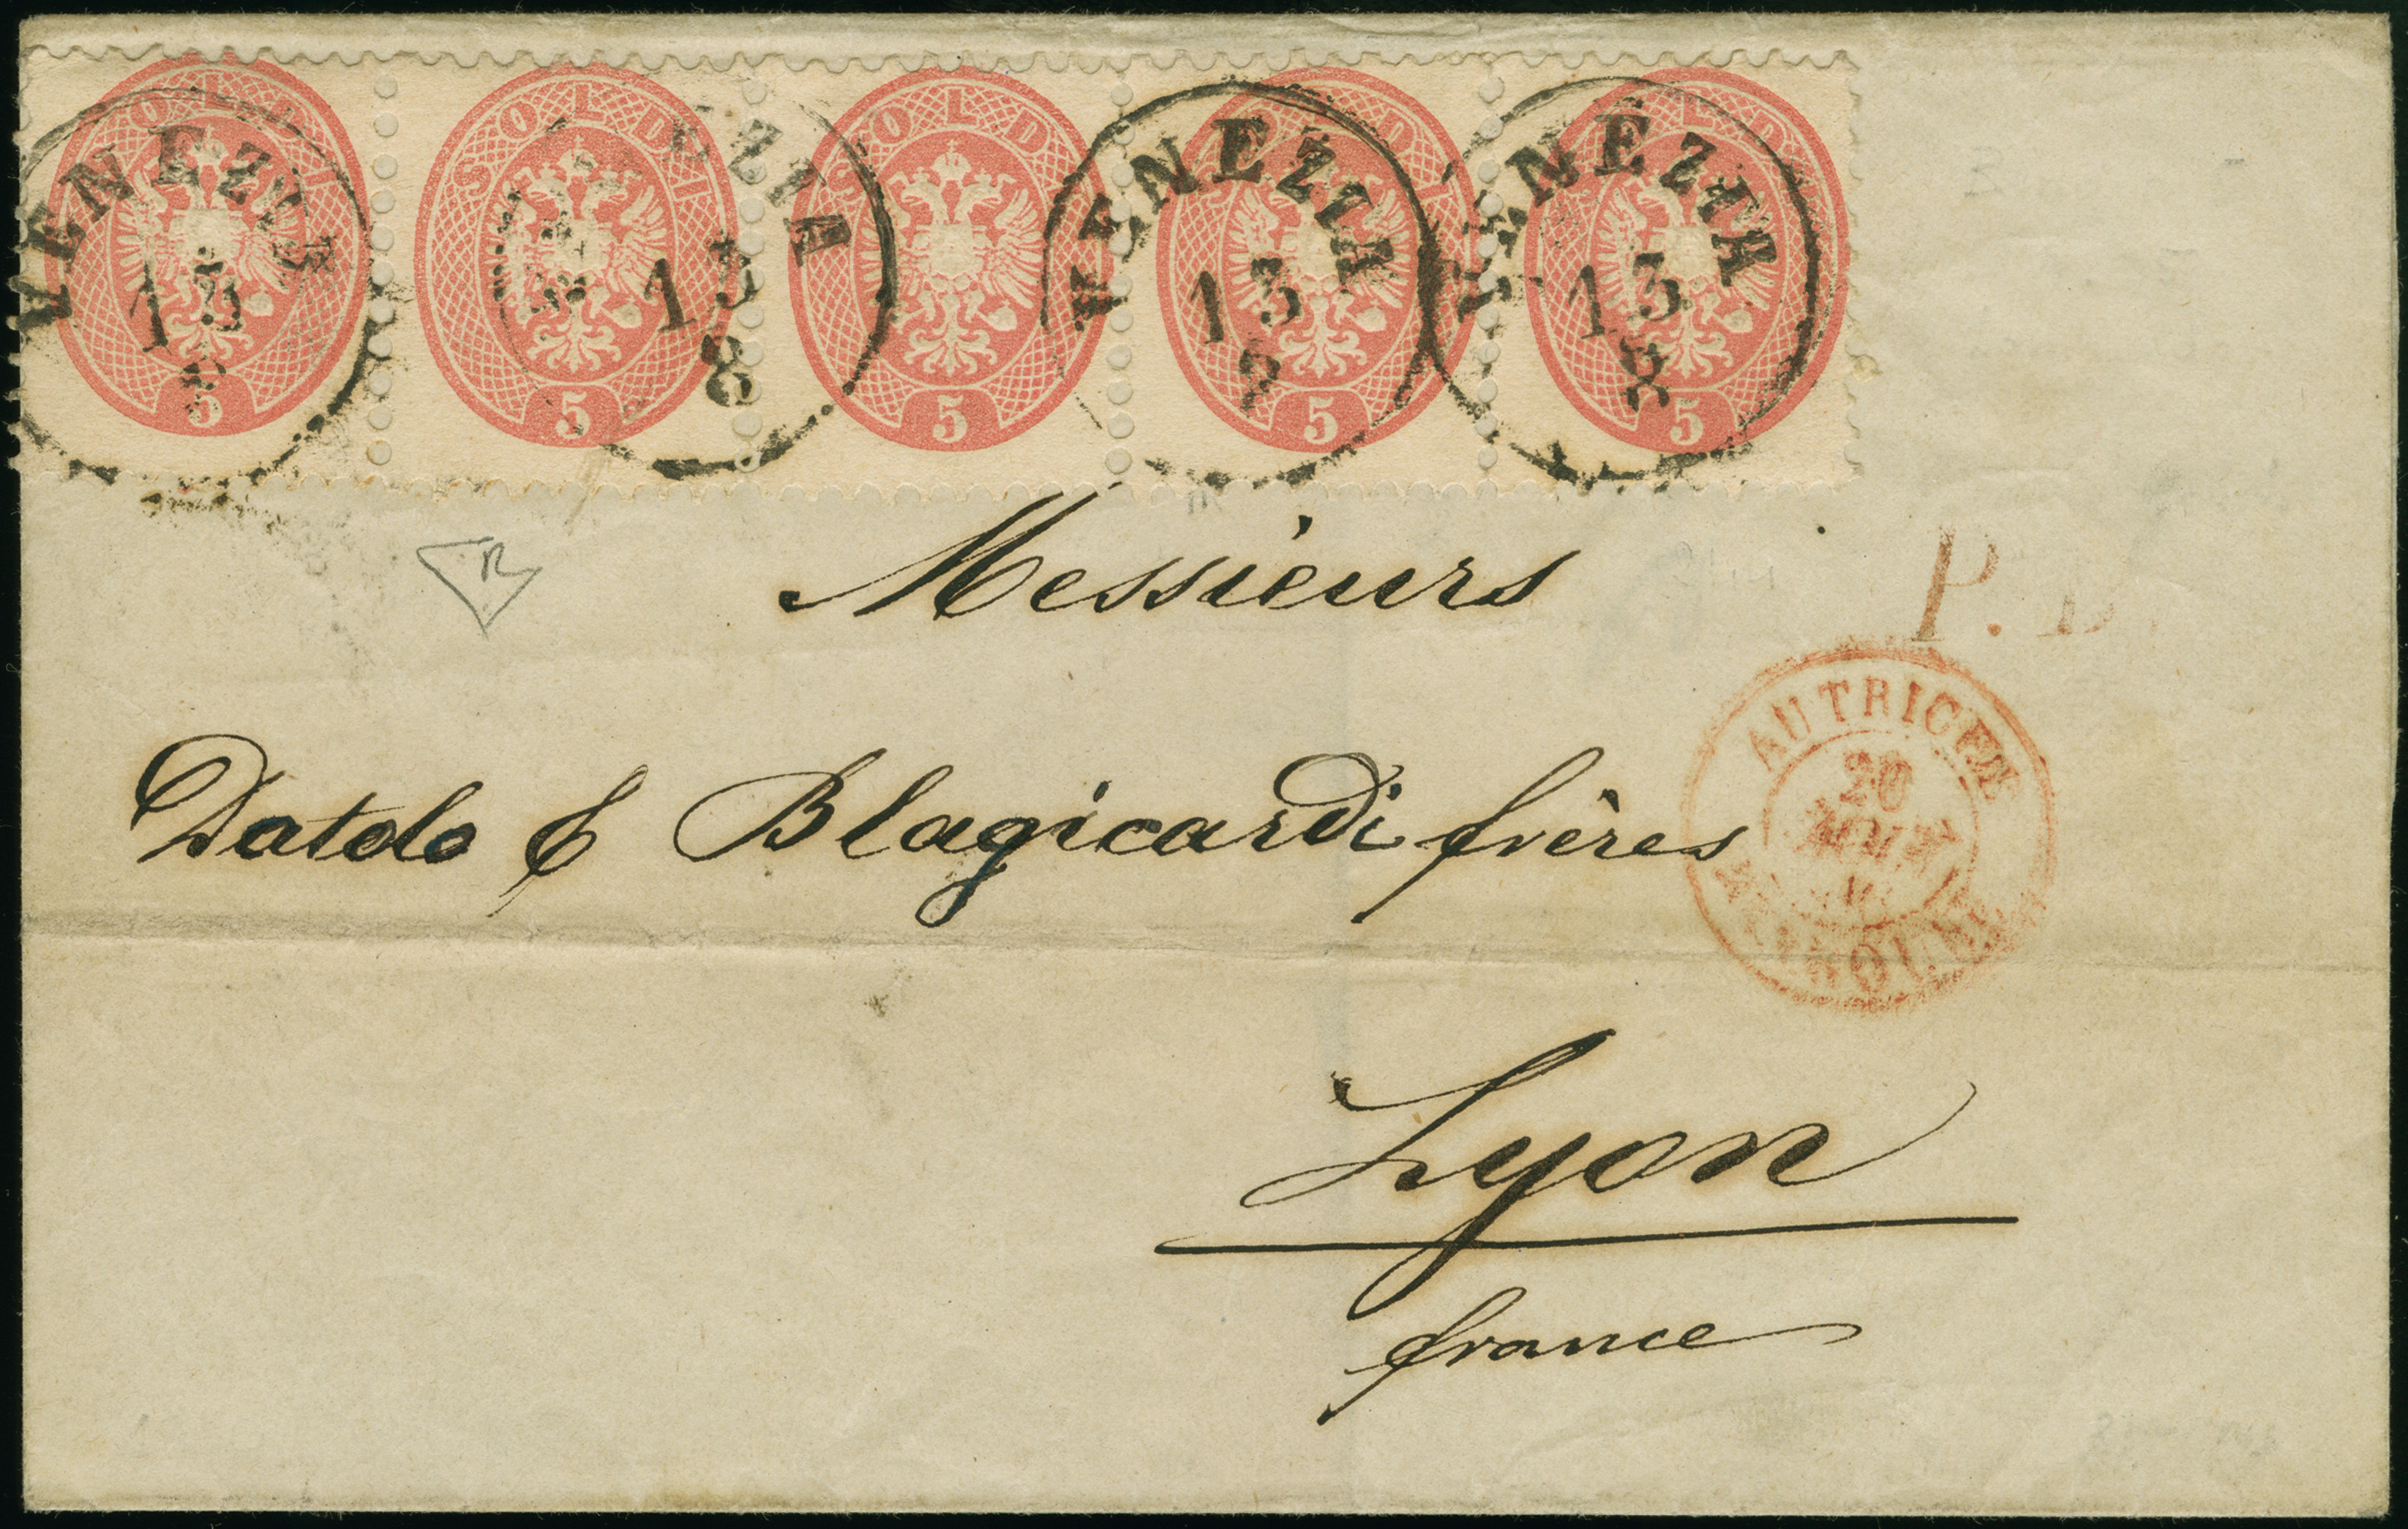 SOLDI SOLDI SOLDI SOLDI SOLDI
VENEZIA VENEZIA VENEZIA
13 13 13
8 8
5 5 5 5 5
Messieurs
P.
AUTRICHE
20
AOUT
Datolo & Blagicardi frères
Lyon
france